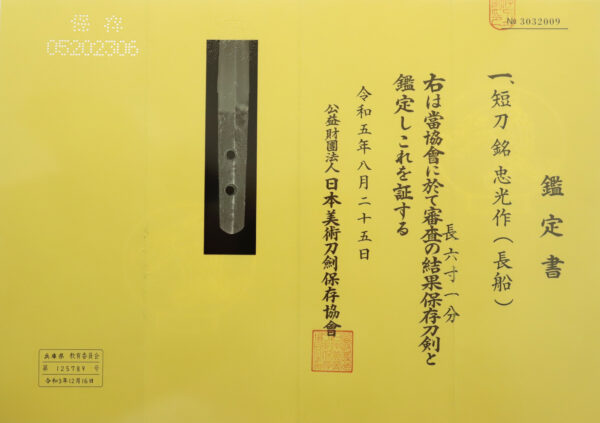 № 3032009
鑑定書
一、短刀 銘 忠光作(長船)
長六寸一分
右は當協會に於て審査の結果保存刀剣と
鑑定しこれを証する
令和五年八月二十五日
公益財團法人 日本美術刀劍保存協會
保存
05202306
兵庫県 教育委員会
第 125789 号
令和3年12月16日